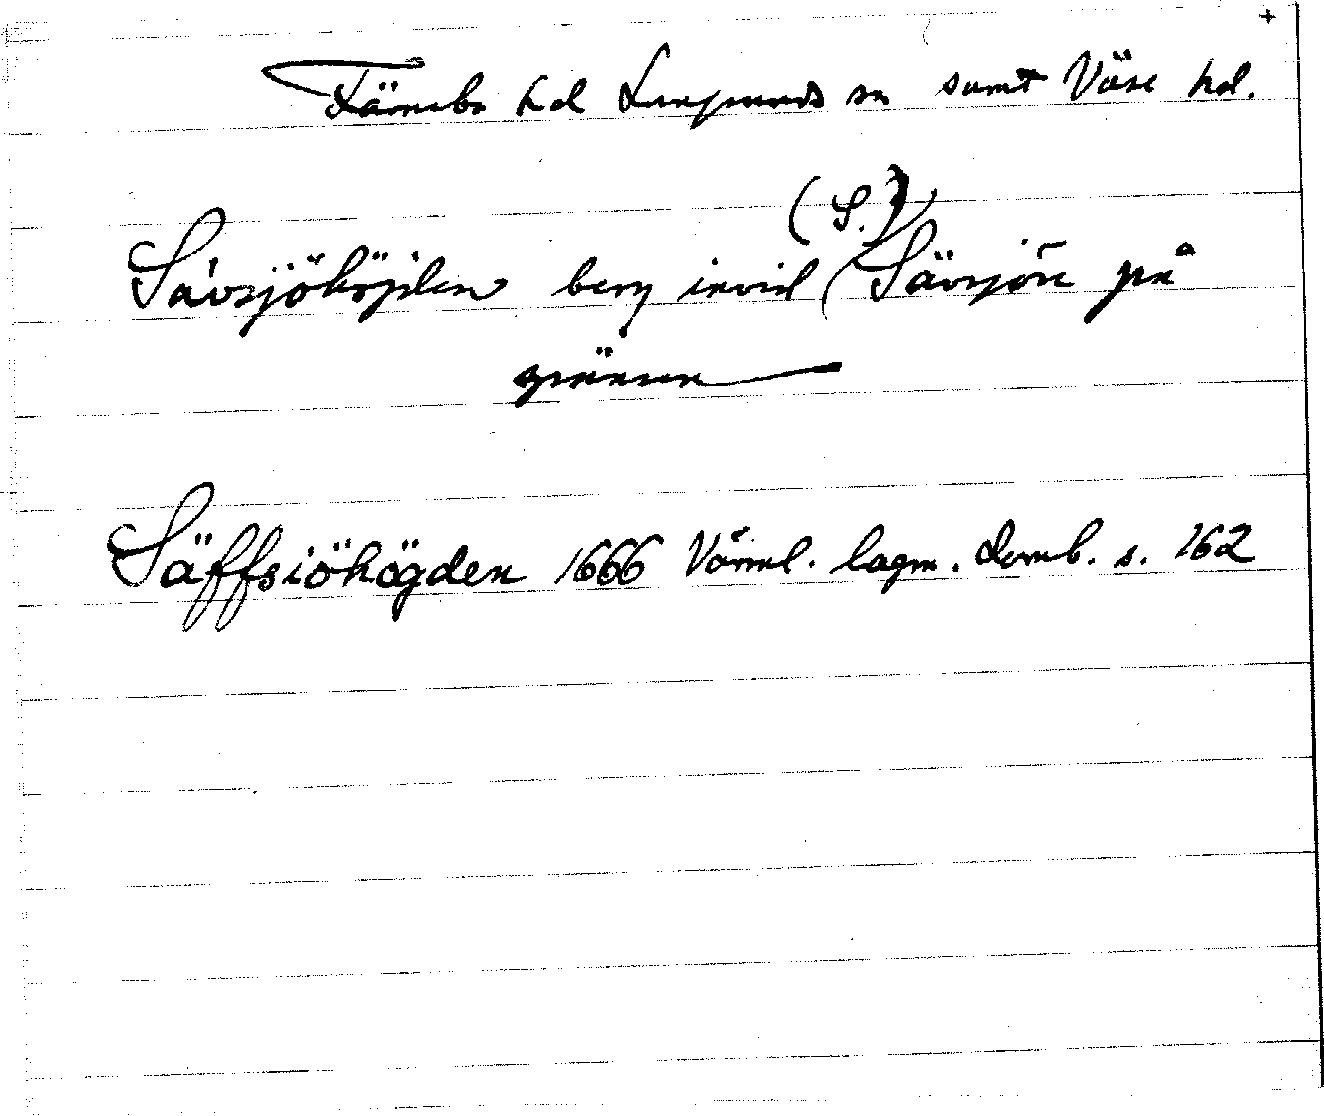 Färnebo hd Lungsunds sn samt Väse hd.
(S.)
Sävsjöhöjden berg invid (Sävsjön på
gränsen
Säffsiöhögden 1666 Värml. lagm. domb. s. 162